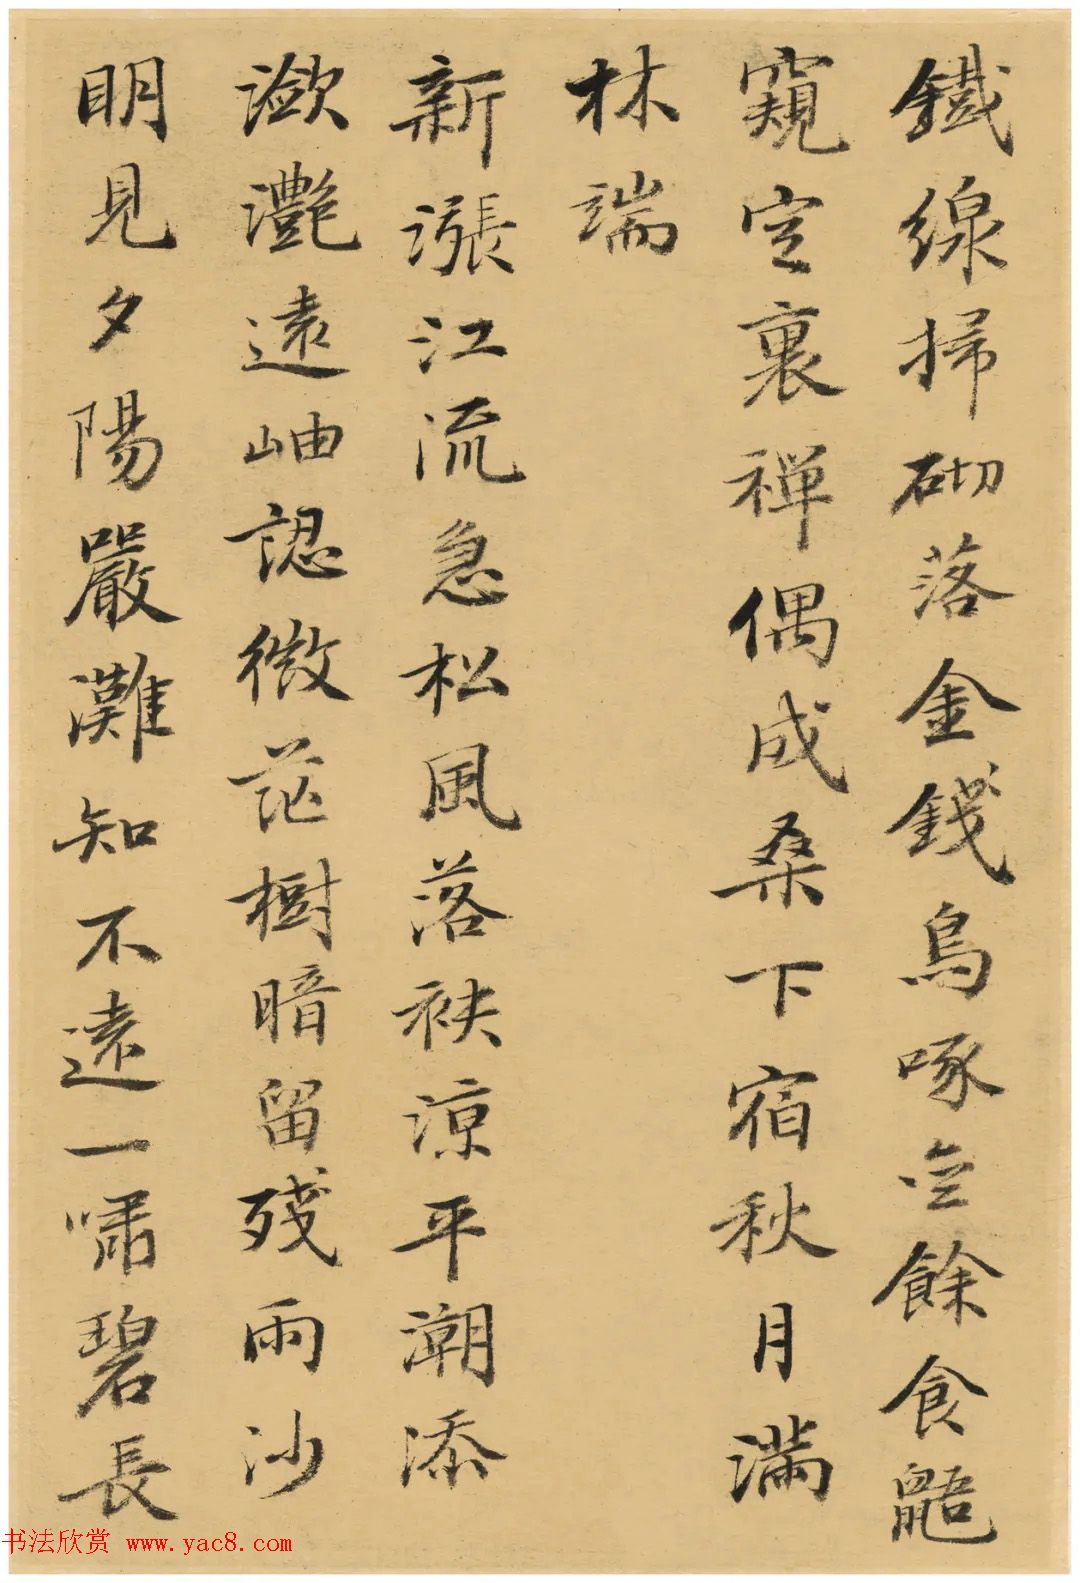 鐵線掃砌落金錢烏啄空餘食鼯
窺定裏禪偶成桑下宿秋月滿
林端
新漲江流急松風落袂涼平潮添
瀲灩遠岫認微茫樹暗留殘雨沙
明見夕陽嚴灘知不遠一嘯碧長
书法欣赏 www.yac8.com